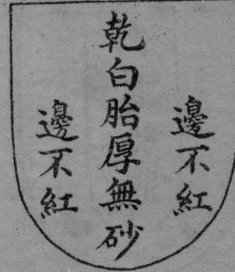 邊不紅
乾白胎厚無砂
邊不紅